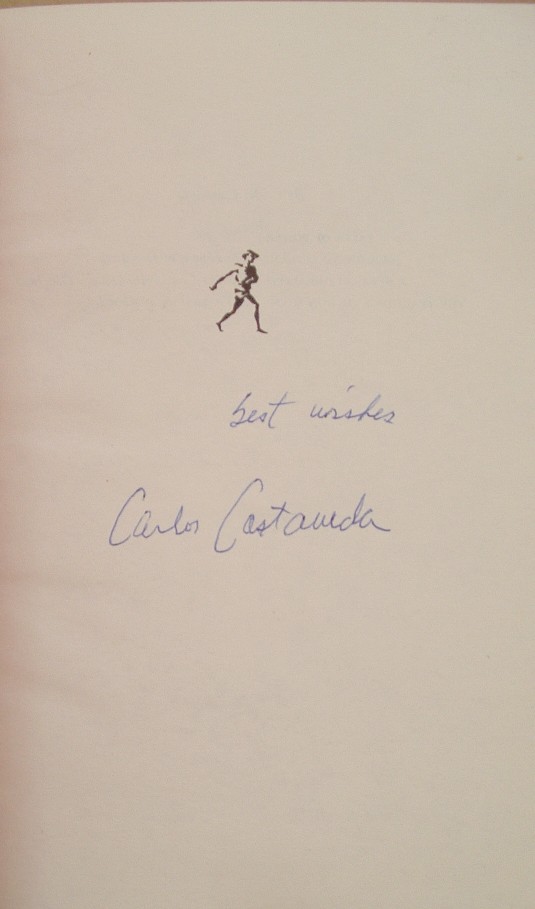 best wishes
Carlos Castaneda